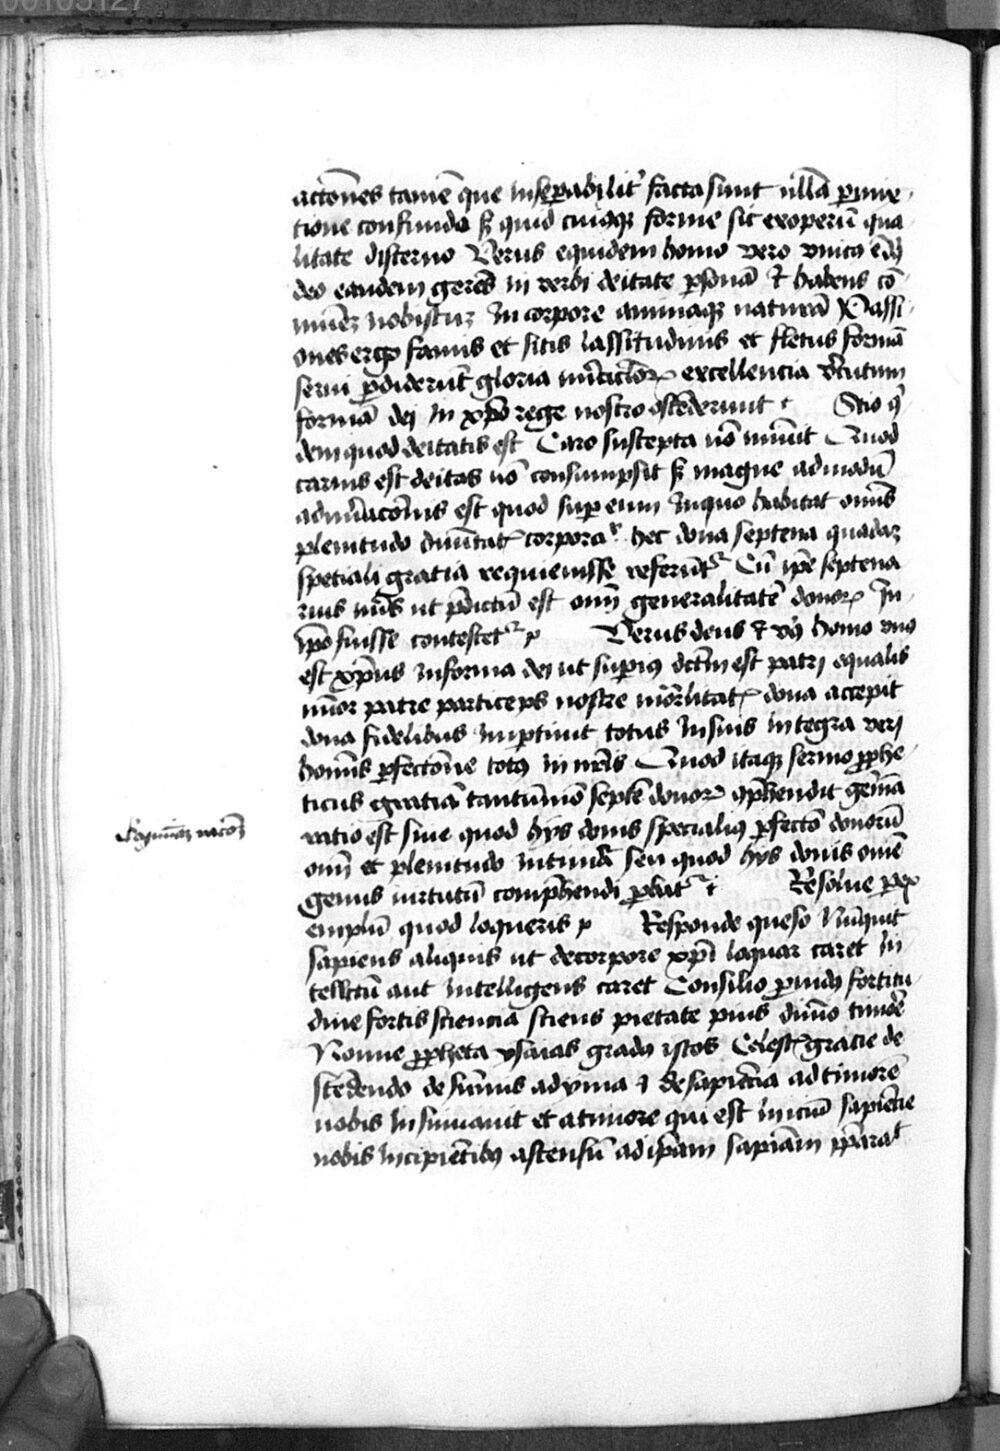 00105127
actiones tamē que inseperabilit' facta sunt ullā p̄mixtione
tione confundo sꝫ quid cuiusqꝫ forme sit ex operū qua
litate discerno Verus equidem homo vero unitus
deo eandem gerēs in verbi deitate p̄sonā et habens cō
munēꝫ nobiscuꝫ in corpore animaqꝫ naturā Passi
ones ergo famis et sitis lassitudinis et fletus formā
serui p̄diderūt gloria excellencia v'tutum
formā dei in xp̄o rege nostro ostēderunt Scio q'
dem quod deitatis est Caro suscepta nō minuit Quod
carnis est deitas nō consumpsit sꝫ magne admodū
admiracōnis est quod super eum in quo habitat omīs
plenitudo diuinitat' corpora' hec dona septena quadaꝫ
speciali gratia requieuisse referūt' Cū ip̄e septena
rius ut p̄dictū est om̄ generalitatē donoꝝ in
ip̄o fuisse contestet' Verus deus et homo unus
est xp̄us in forma dei ut superius dictū est patri equalis
minor patre particeps nostre mortalitat' dona accepit
dona fidelibus impertiuit totus in suis integra veri
hominis p̄fectione totus in n̄ris Quod itaqꝫ sermo p̄phe
ticus gratiā tantūmō septē donoꝝ cōp̄hendit
ratio est siue quod hys donis specialius p̄fecto donorū
om̄ et plenitudo seu quod hys donis omē
genus uirtutū comp̄hendi p̄bat' Resolue
emplū quod loqueris Responde queso Nūquit
sapiens aliquis ut de corpore xp̄i loquar caret in
tellectū aut intelligens caret Consilio fortitu
dine fortis sciencia sciens pietate pius diuīo timōe
Nonne p̄pheta ysaias gradus istos Celest' gratie de
scēdendo de sūmis ad yma et de sapiētia ad timorē
nobis insinuauit et a timore qui est iniciū sapiētie
nobis incipiētibus ascensū ad ip̄am sapiām p̄parat